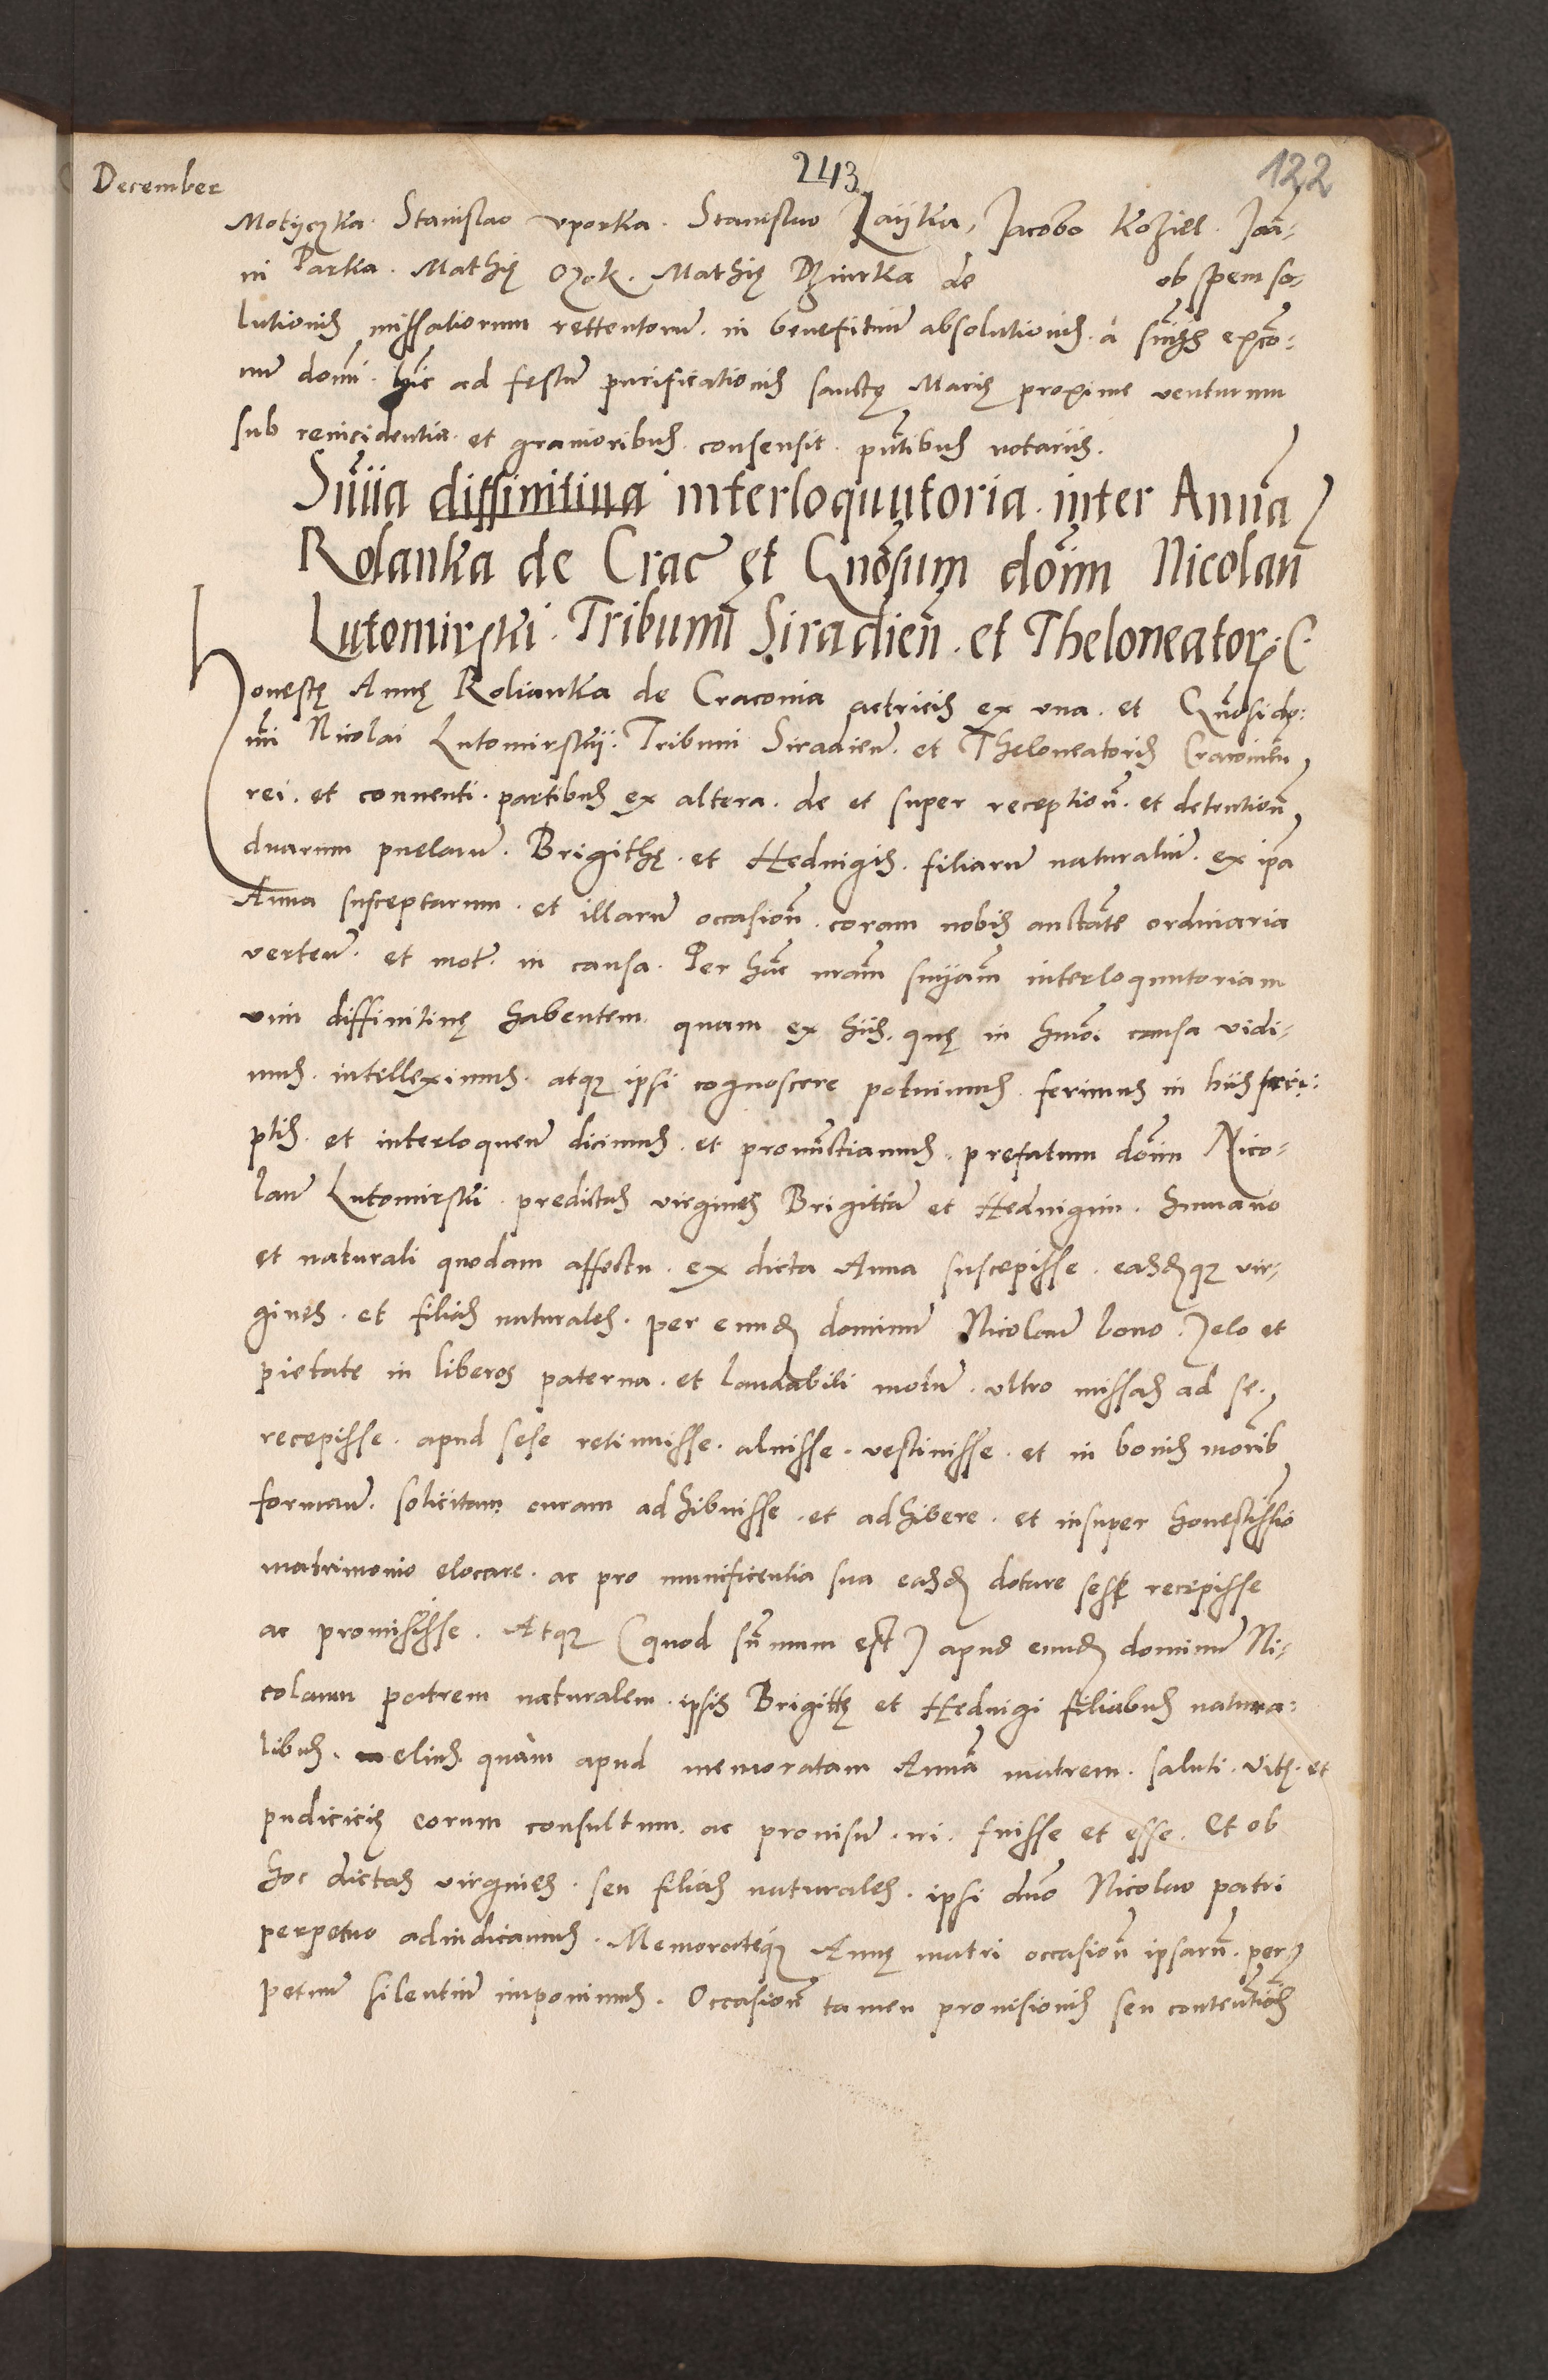 243
122
December
Motyczka. Stanislao Uporka. Stanislao Zaytka, Jacobo Koziel. Joã,
ni Parka. Mathię Ozok. Mathię Dziurka de ob spem so,
lutionis missaliorum rettentorũ. in beneficiũ absolutionis. a sñijs exco,
nũ domi. hic ad festũ purificationis sanctę Marię proxime venturum
sub reincidentia. et gravioribus. consensit. pñtibus notariis.
Sñiia diffinitiua interloquutoria. inter Annã
Rolanka de Crac̃ et Gnõsum dõim Nicolaũ
Lutomirski. Tribunũ Siradieñ. et Theloneator. C.
Honestę Annę Rolianka de Craconia actricis ex una. et Gñosi do:
mi Nicolai Lutomirskij. Tribuni Siradien̄. et Theloneatoris Craconień
rei. et conuenti. partibus ex altera. de et super receptioñ. et detentioñ
duarum puelarũ. Brigithę. et Heduigis. filiarũ naturaliũ. ex ipa
Anna susceptarum. et illarũ occasioñ. coram nobis auctãte ordinaria
verteñ. et mot̃. in causa. Per hãc nrãm snijam interloquutoriam
vim diffinitiuę habentem quam ex hijs. quę in hmõi causa vidi,
mus. intelleximus. atqz ipsi cognoscere potuimus. ferimus in hijs scri:
ptis. et interloqueñ dicimus. et pronũctiamus. prefatum dõim Nico,
laũ Lutomirski. predictas virgines Brigittã et Heduigim. humano
et naturali quodam affectu. ex dicta Anna suscepisse. easdqz vir,
gines. et filias naturales. per eund dominũ Nicolaũ bono zelo et
pietate in liberos paterna. et laudabili motũ. ultro missas ad se.
recepisse. apud sese retinuisse. aluisse. vestiuisse. et in bonis morib
formanũ. solicitam curam adhibuisse. et adhibere. et insuper honestissio
matrimonio elocare. ac pro munificentia sua easd dotare sese recepisse
ac promisisse. Atqz (quod sũmum est) apud eund dominũ Ni,
colaum patrem naturalem. ipsis Brigittę et Heduigi filiabus natura:
libus. melius quàm apud memoratam Annã matrem. saluti. vitę. et
pudicicię eorum consultum. ac prouisũ. iri. fuisse et esse. Et ob
hoc dictas virgines. seu filias naturales. ipsi dño Nicolao patri
perpetuo adiudicamus. Memorateqz Annę matri occasioñ ipsarũ. per,
petuũ silentiũ imponimus. Occasioñ tamen prouisionis seu contentõis